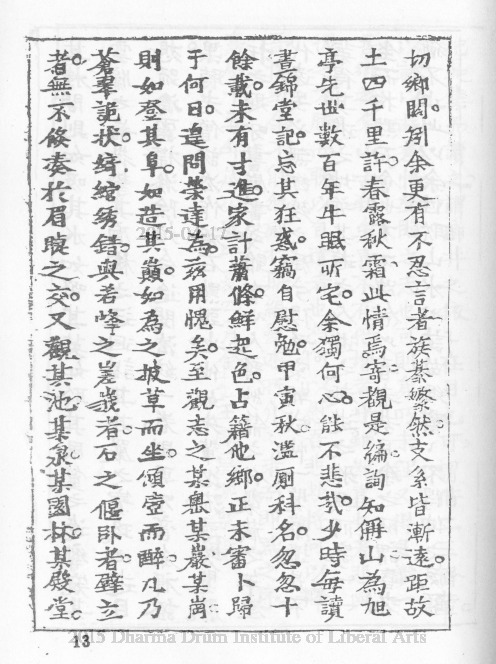 切鄉閭矧余更有不忍言者族綦繁然支系皆漸遠距故
土四千里許春露秋霜此情焉寄觀是編詢知解山為旭
亭先世數百年牛眠所宅余獨何心能不悲哉少時每讀
晝錦堂記忘其狂惑竊自慰勉甲寅秋濫厠科名忽忽十
餘載未有寸進家計蕭條鮮起色占籍他鄉正未審卜歸
于何日遑問榮達為茲用愧矣至觀志之某輿某巖某崗
則如登其阜如造其巔如為之披草而坐傾壺而醉凡乃
蒼翠詭狀綺綰綉錯與若峰之嵳峩者石之偃卧者壁立
者無不倏奏於眉睫之交又觀某池某泉某園林某殿堂
2015-04-17
2015 Dharma Drum Institute of Liberal Arts
13